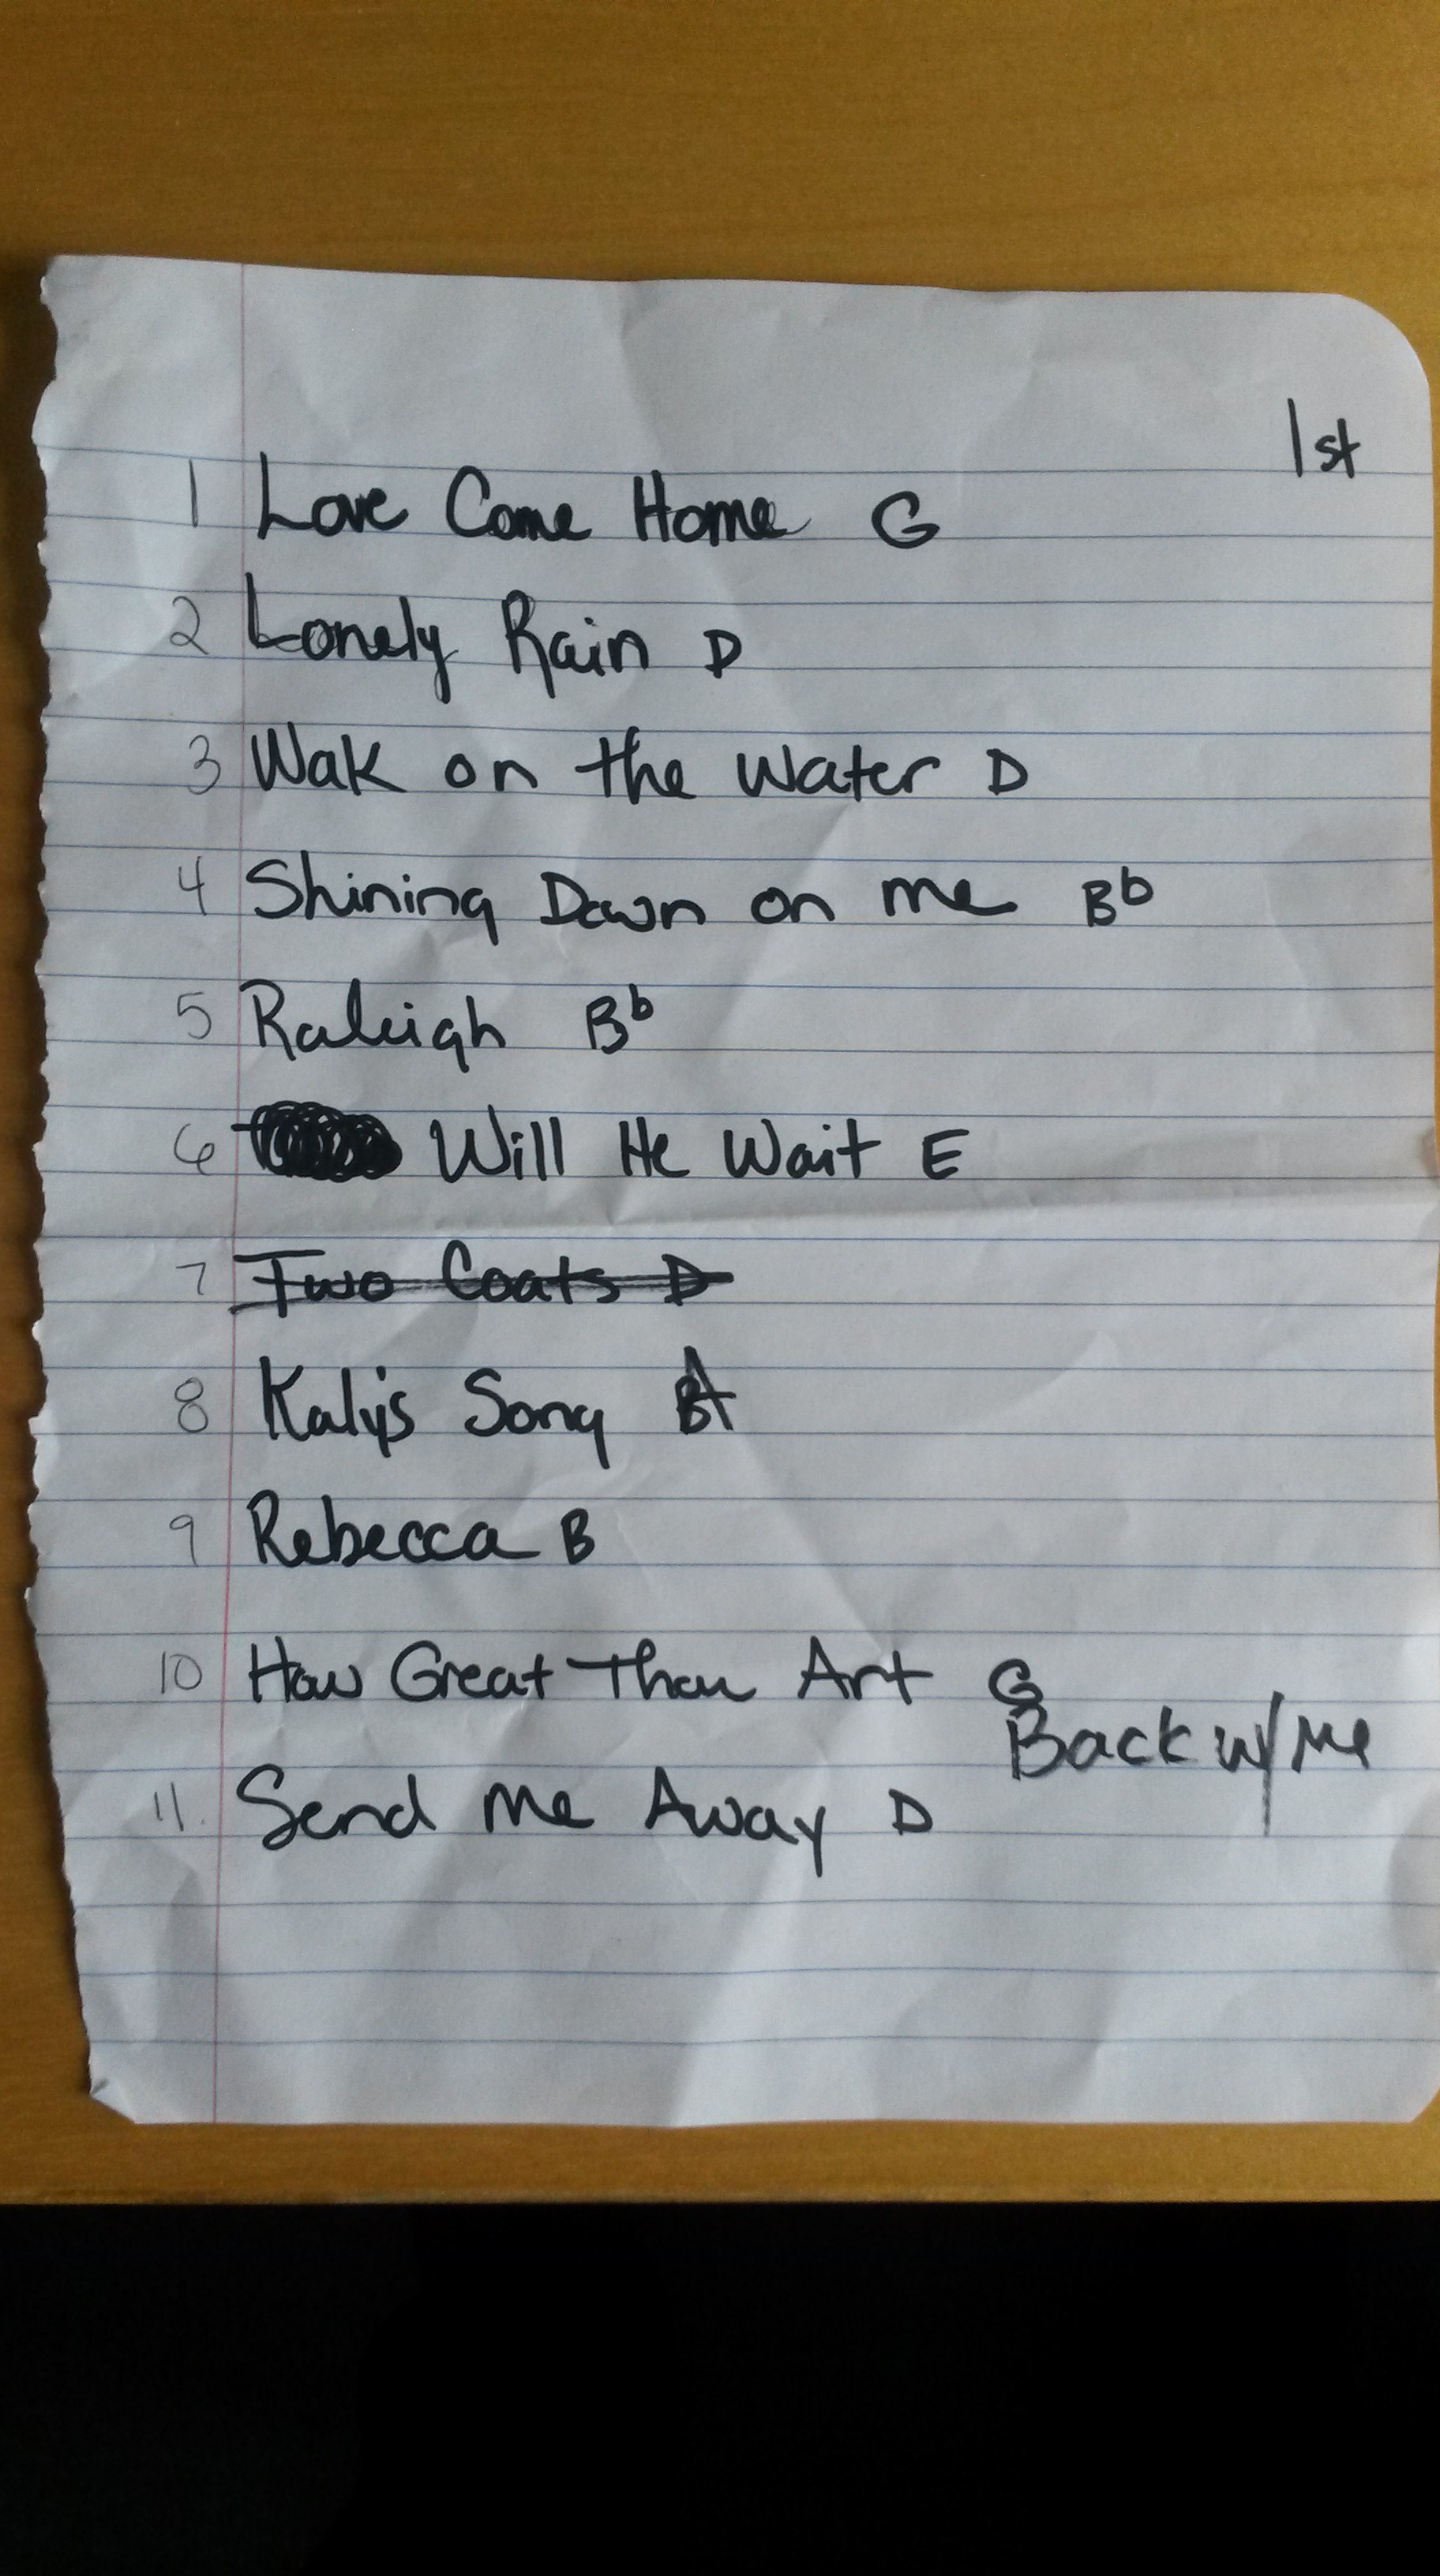 1st
1 Love Come Home G
2 Lonely Rain D
3 Wak on the Water D
4 Shining Down on me Bb
5 Raleigh Bb
6 Will He Wait E
7 Two Coats D
8 Kaly's Song A
9 Rebecca B
10 How Great Thou Art G
Back w/ Me
11. Send Me Away D